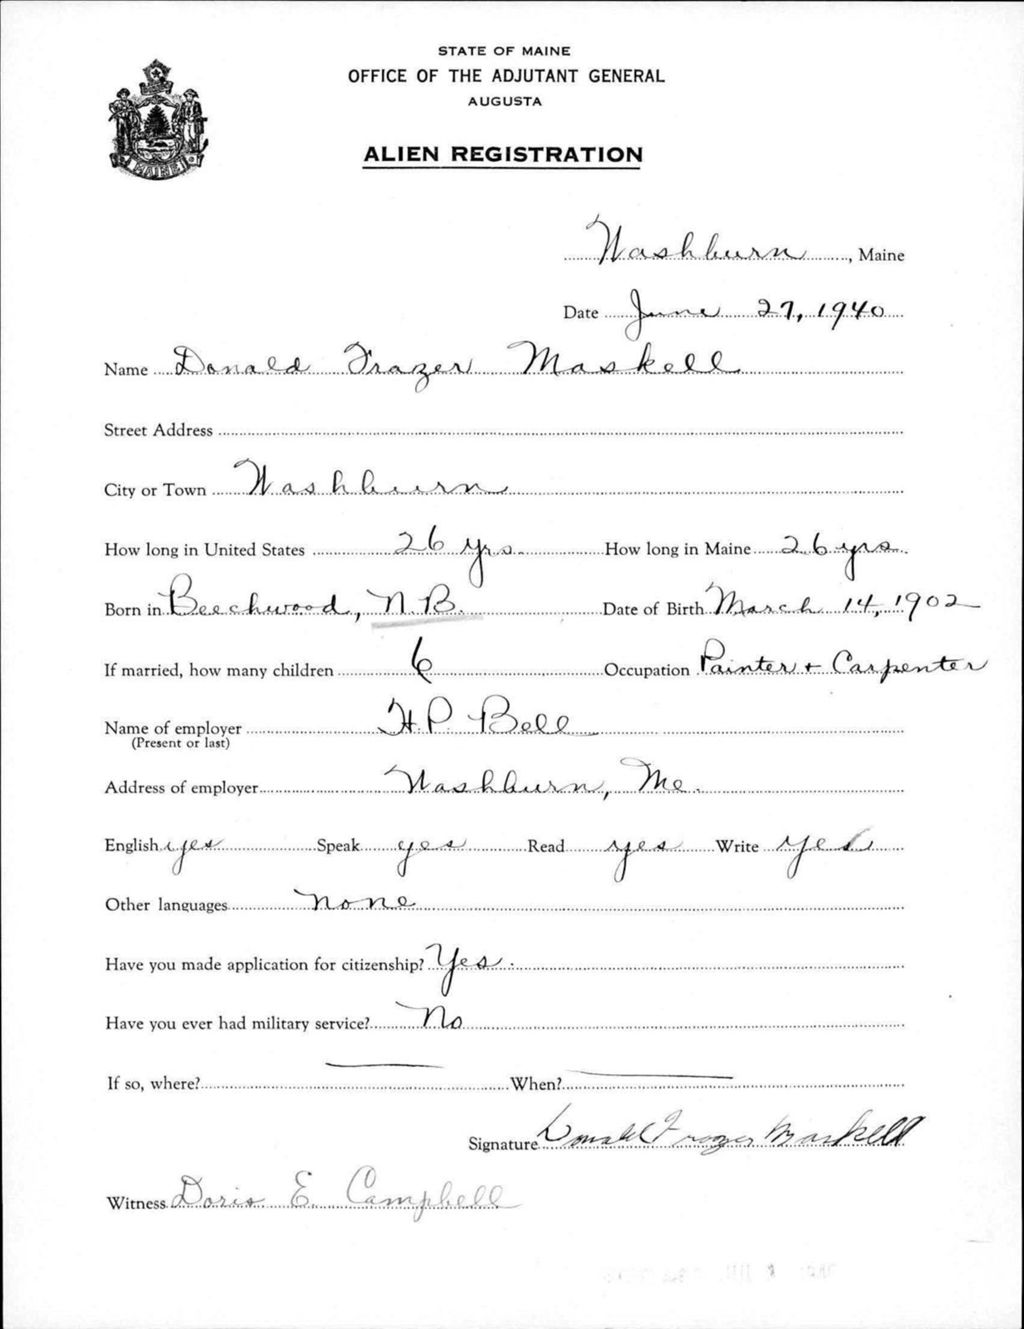 STATE OF MAINE
OFFICE OF THE ADJUTANT GENERAL
AUGUSTA
ALIEN REGISTRATION
MAINE
Washburn, Maine
Date June 27, 1940
Name Donald Frazer Maskell
Street Address
City or Town Washburn
How long in United States 26 yrs. How long in Maine 26 yrs.
Born in Beechwood, N.B. Date of Birth March 14, 1902
If married, how many children 6 Occupation Painter + Carpenter
Name of employer H.P. Bell
(Present or last)
Address of employer Washburn, Me.
English yes Speak yes Read yes Write yes
Other languages none
Have you made application for citizenship? Yes.
Have you ever had military service? No
If so, where? — When? —
Signature Donald Frazer Maskell
Witness Doris E. Campbell